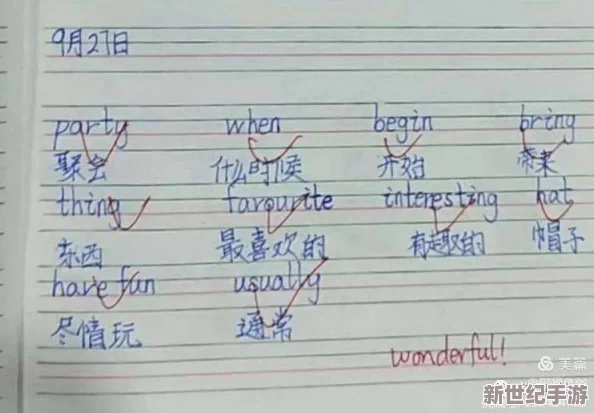 9月27日
party when begin bring
聚会 什么时候 开始 带来
thing favourite interesting hat
东西 最喜欢的 有趣的 帽子
have fun usually
尽情玩 通常
wonderful!
美篇
新世纪手游